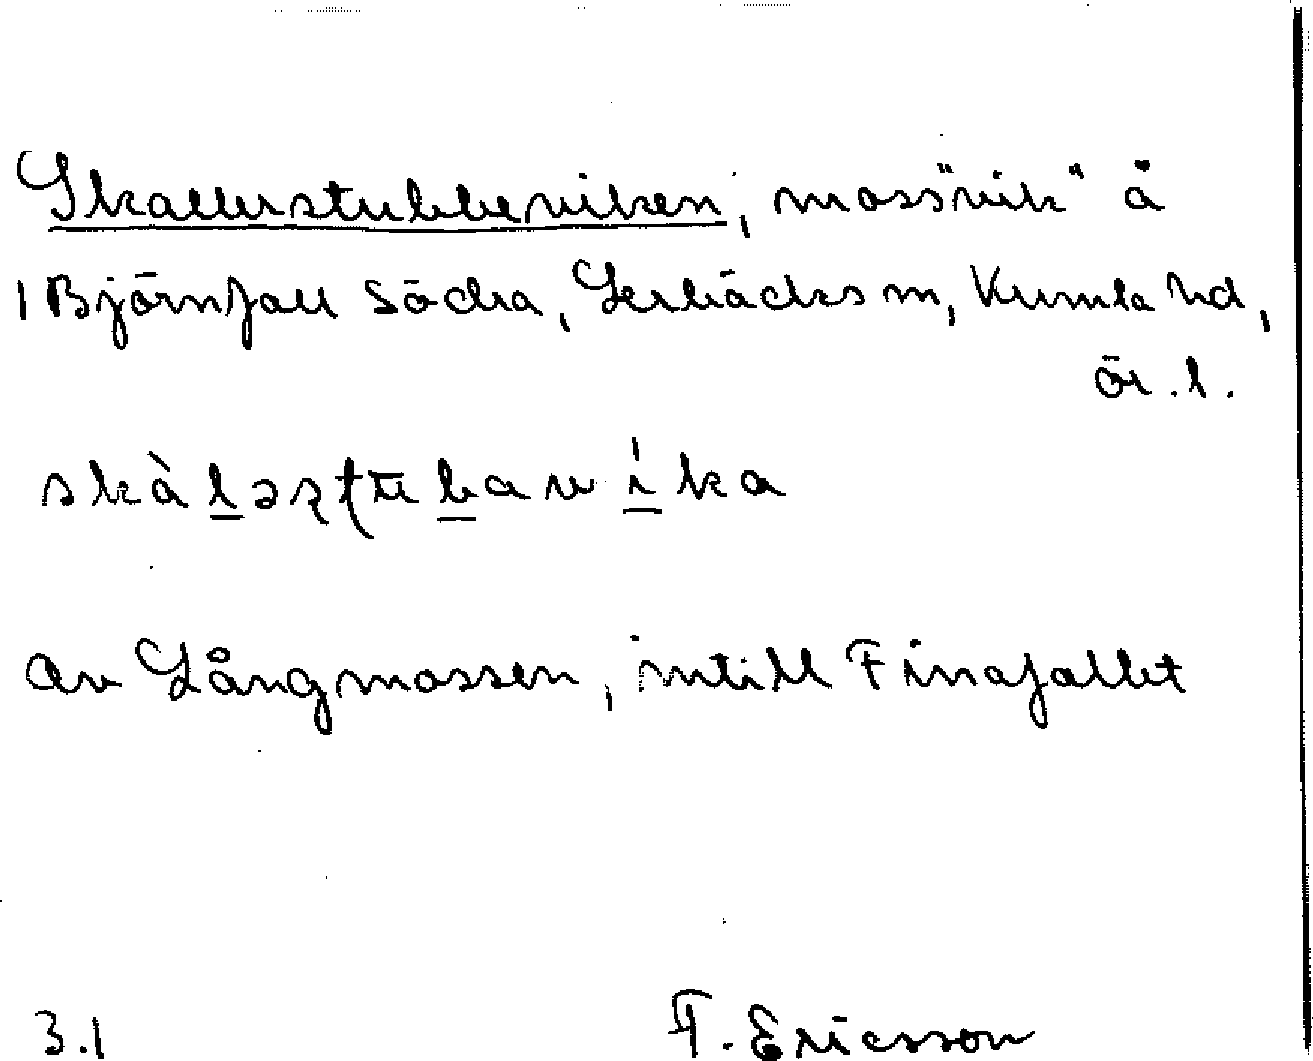 Skallerstubbeviken, moss"vik" å
1 Björnfall Södra, Lerbäcks sn, Kumla hd,
Ör. l.
skàləʂʈubawíka
av Långmossen, intill Finafallet
3.1 T. Ericsson